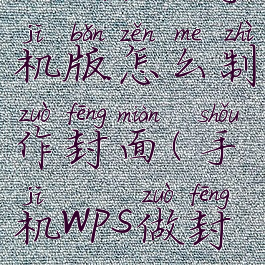 jī bǎn zěn me zhì
机版怎么制
zuò fēng miàn shǒu
作封面(手
jī zuò fēng
机WPS做封